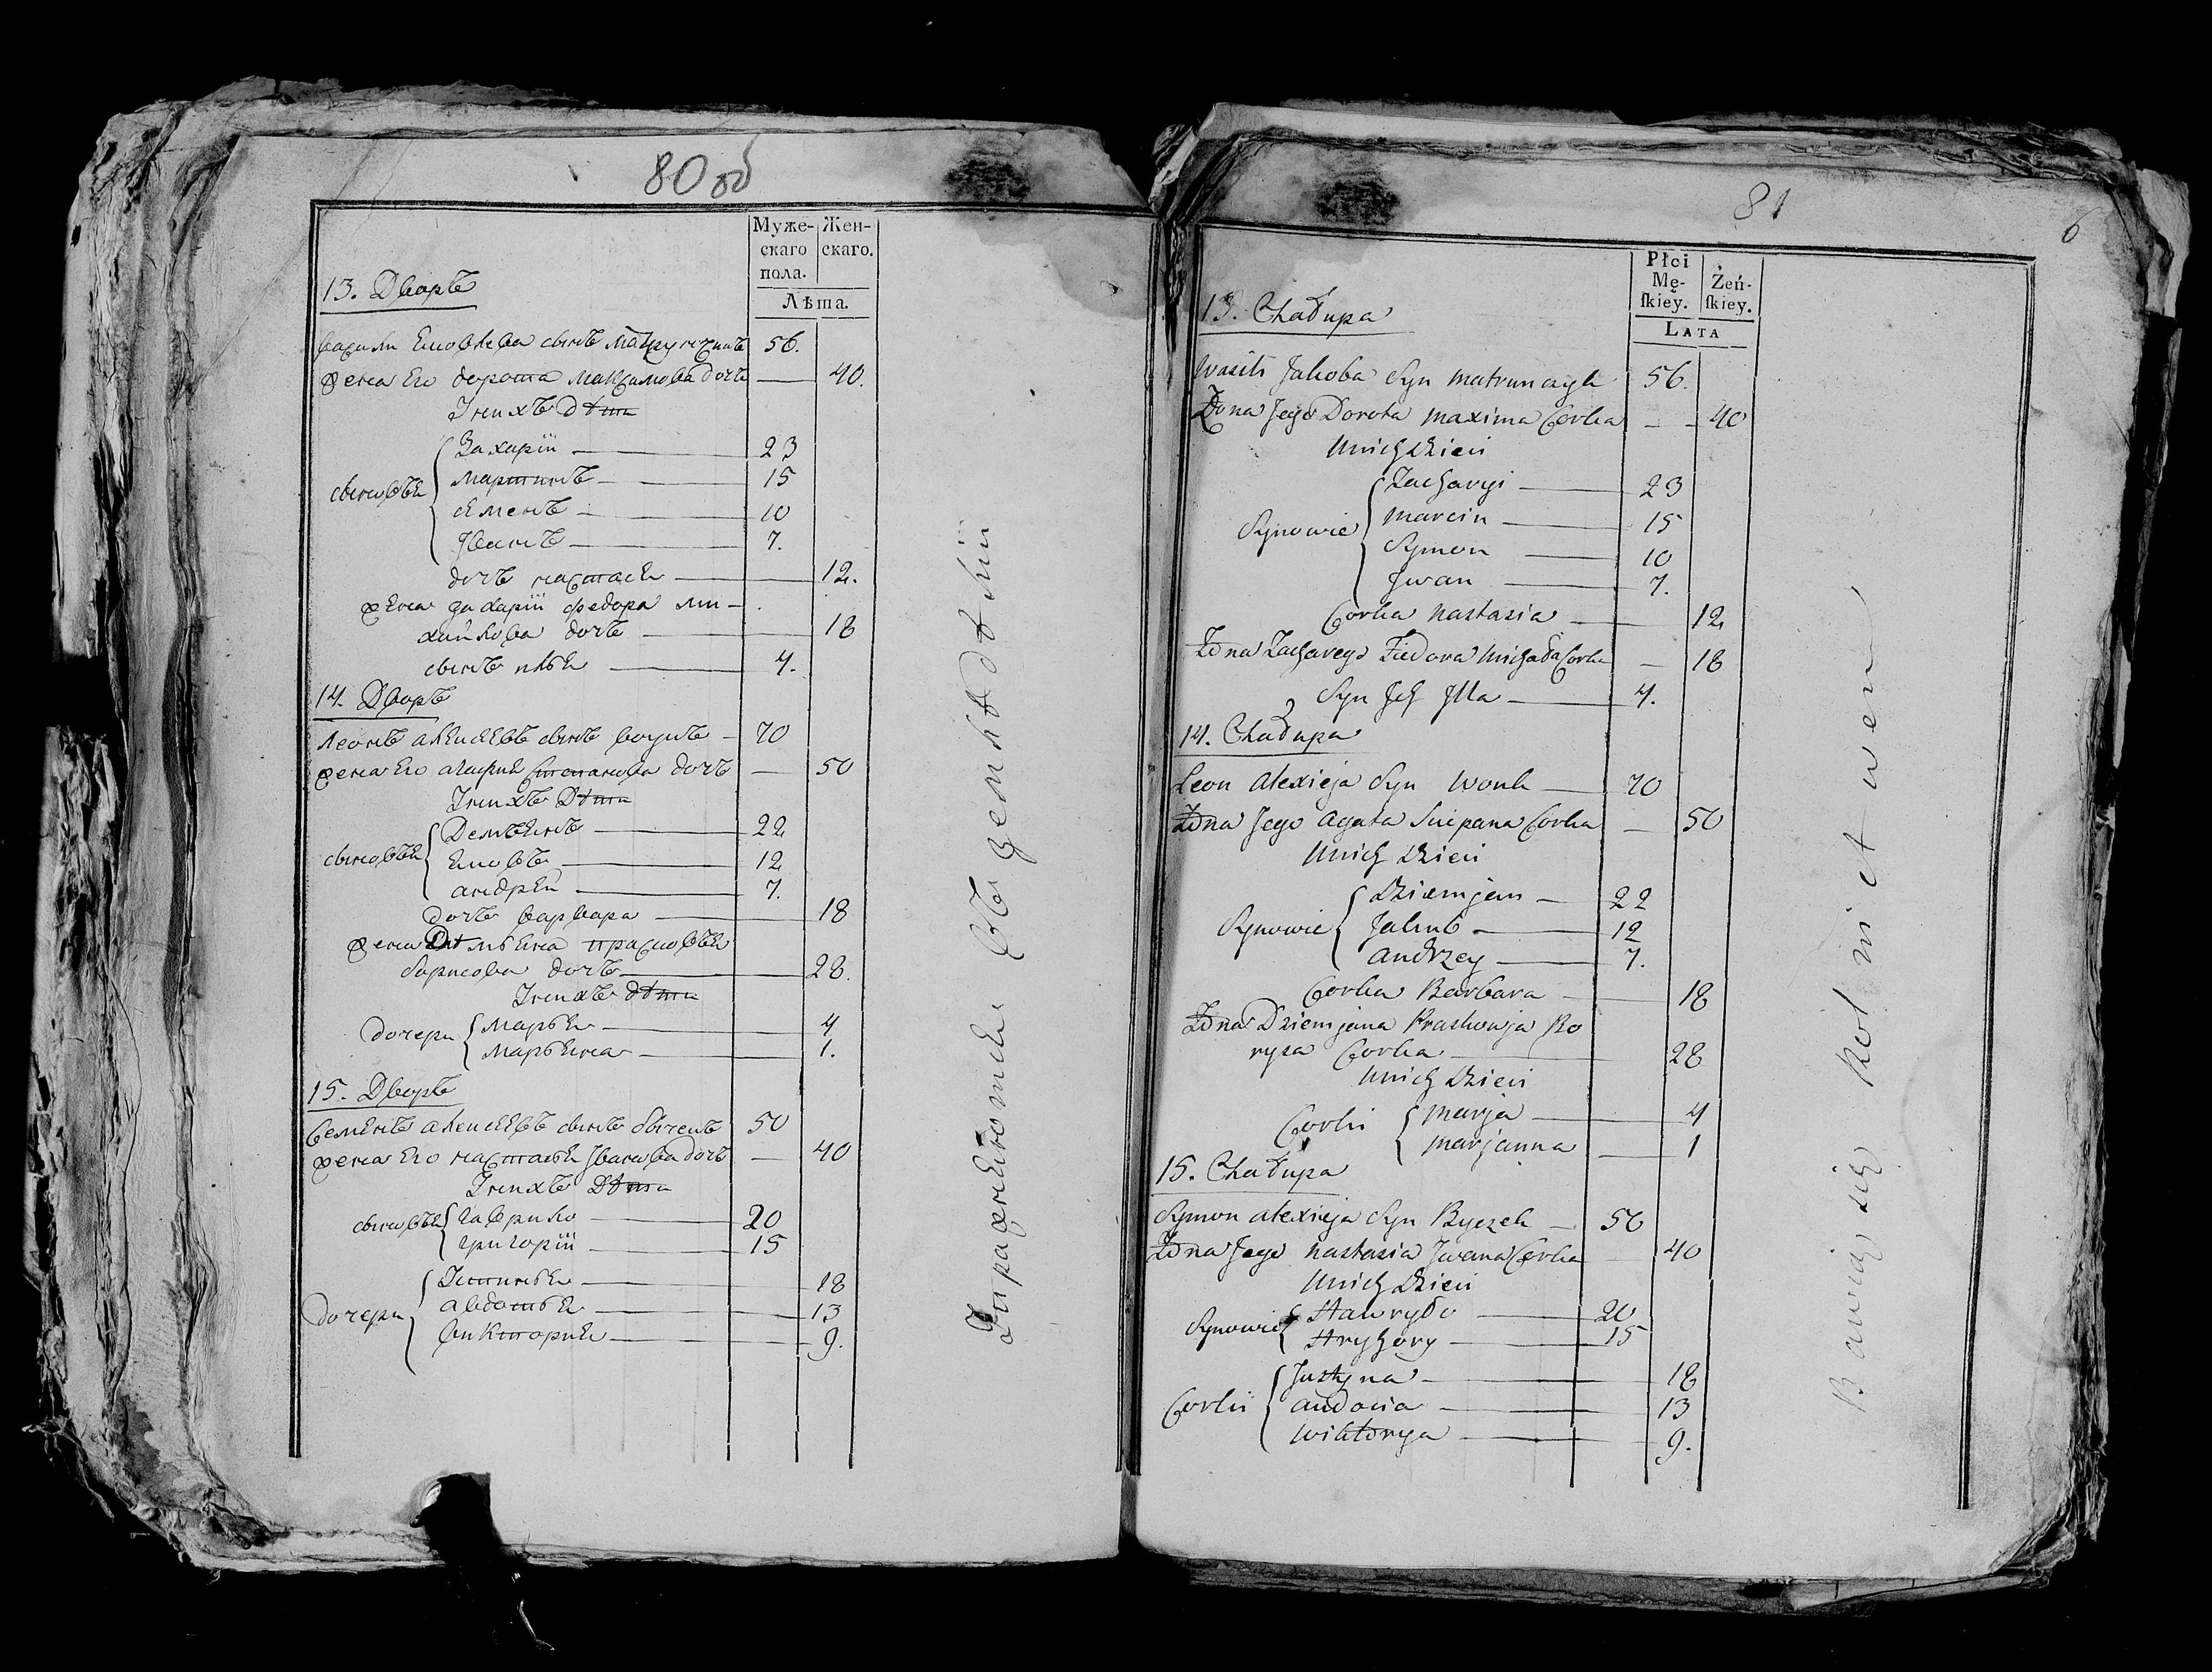 80 об
Муже-
скаго
пола.
Жен-
скаго.
Лѣта.
13. Дворъ
Васили Екювлева сынъ Матрунчикъ 56.
Жена Его дорота Максимова дочь — 40.
Унихъ дѣти
сыновья
Захарiй — 23
Мартинъ — 15
Семенъ — 10
Иванъ — 7.
дочь настася — 12.
жена захарiй федора ми-
хайлова дочь — 18
сынъ илья — 4.
14. Дворъ
Леонъ алексеевъ сынъ воукъ — 70
жена Его агафия степанова дочь — 50
Унихъ Дѣти
сыновья
Демьянъ — 22
Екювъ — 12
андрей — 7.
дочь варвара — 18
жена Демьяна прасковья
борисова дочь — 28.
Унихъ дѣти
дочери
Марья — 4
Марьяна — 1.
15. Дворъ
Семенъ алексеевъ сынъ бычекъ 50
жена Его настасья Иванова дочь — 40
Унихъ Дѣти
сыновья
гаврило — 20
григорiй — 15
дочери
Устинья — 18
авдотья — 13
виктория — 9.
Упражняются въ земледѣлiи
81
6
Płci
Mę-
ſkiey.
Żeń-
ſkiey.
LATA
13. Chałupa
Wasili Jakoba Syn Matrunczyk 56.
Żona Jego Dorota Maxima Corka — 40
Unich Dzieci
Synowie
Zacharyi — 23
Marcin — 15
Symon — 10
Jwan — 7.
Corka Nastazia — 12
Żona Zacharego Fiedora Michała Corka — 18
Syn Jch Jlla — 4.
14. Chałupa
Leon Alexieja Syn Wouk — 70
Żona Jego Agata Sciepana Corka — 50
Unich Dzieci
Synowie
Dziemjan — 22
Jakub — 12
Andrzey — 7.
Corka Barbara — 18
Żona Dziemjana Praskowja Bo
rysa Corka — 28
Unich Dzieci
Corki
Marja — 4
Marjanna — 1
15. Chałupa
Symon Alexieja Syn Byczek — 50
Żona Jego Nastazia Jwana Corka — 40
Unich Dzieci
Synowie
Hawryło — 20
Hryhory — 15
Corki
Justyna — 18
Audocia — 13
Wiktorya — 9.
Bawią się Rolnictwem